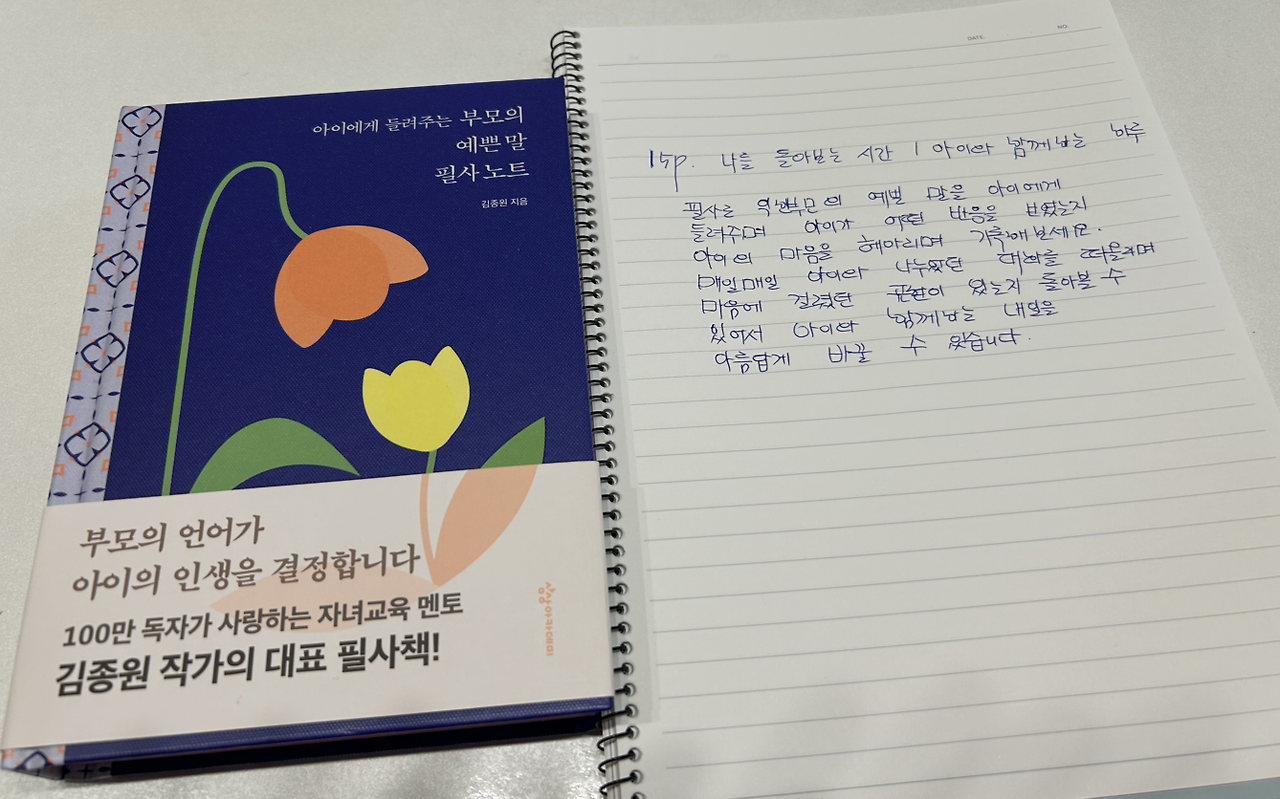 아이에게 들려주는 부모의
예쁜 말
필사 노트
김종원 지음
부모의 언어가
아이의 인생을 결정합니다
100만 독자가 사랑하는 자녀교육 멘토
김종원 작가의 대표 필사책!
상상아카데미
DATE.
NO.
15p. 나를 돌아보는 시간 / 아이와 함께하는 하루
필사로 익힌 부모의 예쁜 말을 아이에게
들려주며 아이가 어떤 반응을 보였는지
아이의 마음을 헤아리며 기록해보세요.
매일매일 아이와 나누었던 대화를 떠올리며
마음에 걸렸던 표현이 있는지 돌아볼 수
있어서 아이와 함께하는 내일을
아름답게 바꿀 수 있습니다.